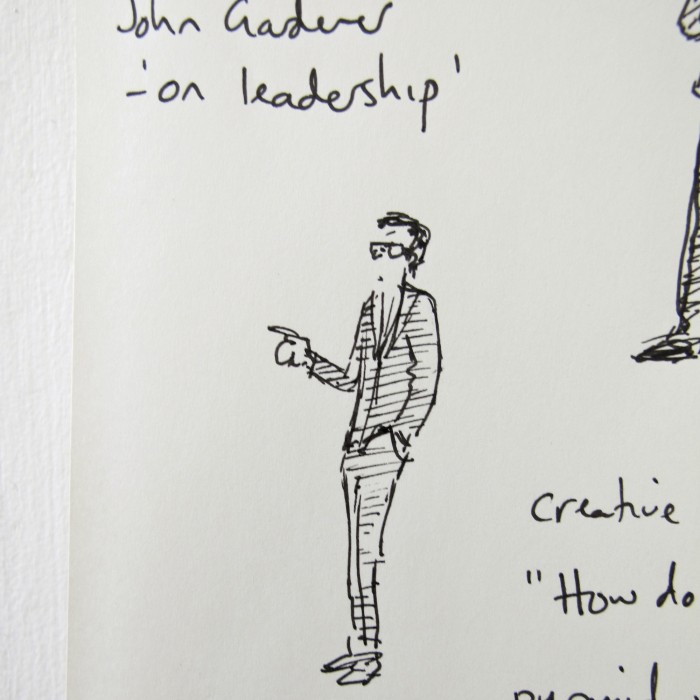 John Gardener
-'on leadership'
creative
"How do